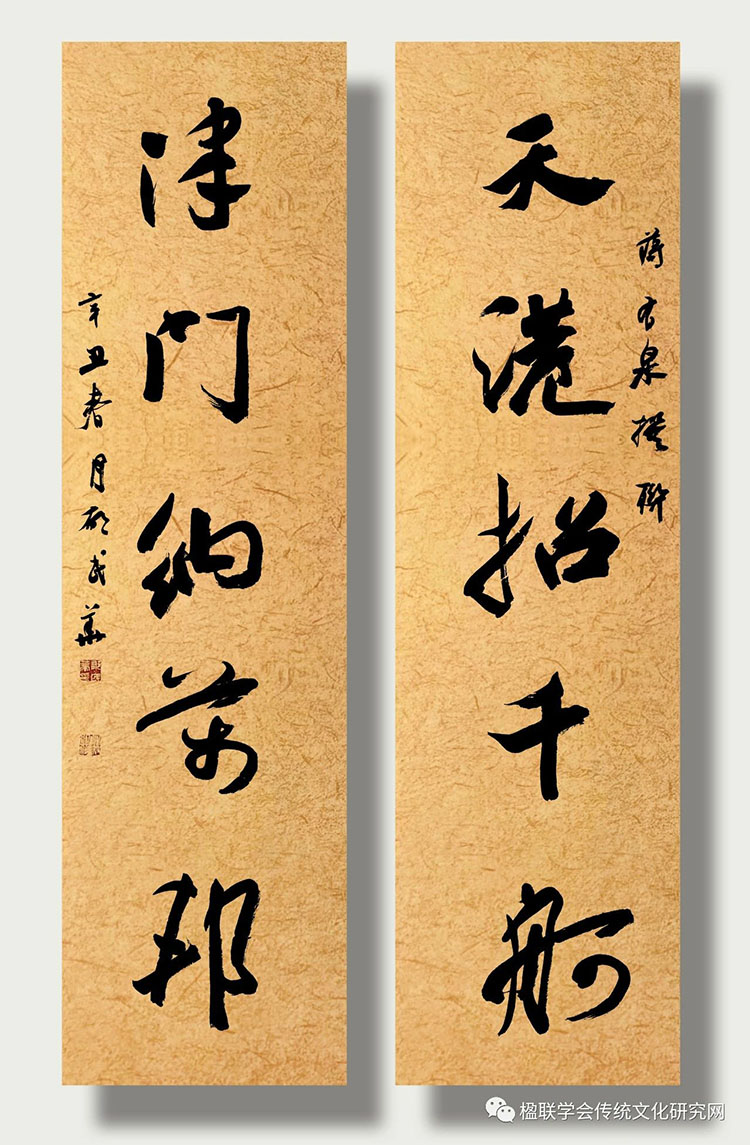 天港招千舸
蒋有泉撰联
津门纳万邦
辛丑春月
楹联学会传统文化研究网